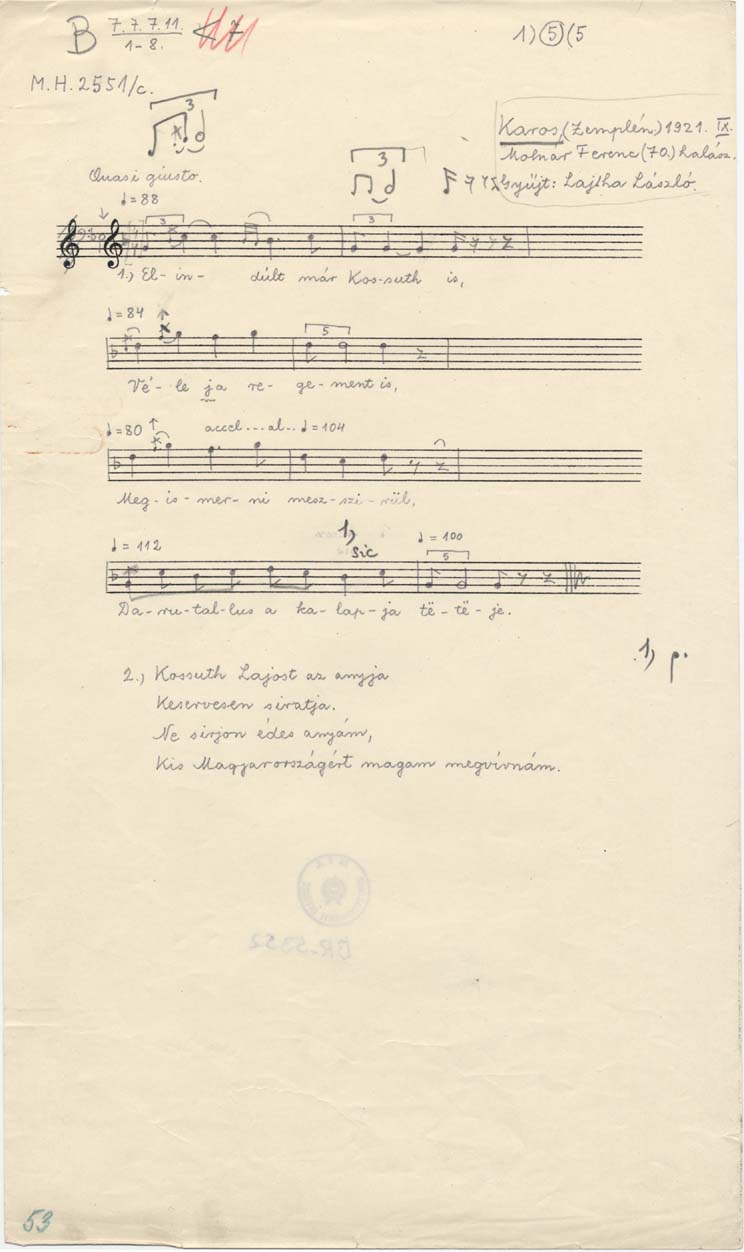 B 7.7.7.11. K 7
1-8.
1) 5 (5
M.H. 2551/c.
3
Karos, (Zemplén) 1921. IX.
Molnár Ferenc (70.) halász.
Gyüjt: Lajtha László.
3
Quasi giusto.
♩= 88
3
3
1.) El- in- dúlt már Kos-suth is,
♩= 84
5
Vé- le ja re- ge- ment is,
♩= 80 accel....al.. ♩= 104
Meg- is- mer- ni mesz-szi-rül,
♩= 112
1) sic
♩= 100
5
Da-ru-tal-lus a ka-lap-ja të-të-je.
1) p.
2.) Kossuth Lajost az anyja
Keservesen siratja.
Ne sirjon édes anyám,
Kis Magyarországért magam megvívnám.
BR-5352
53